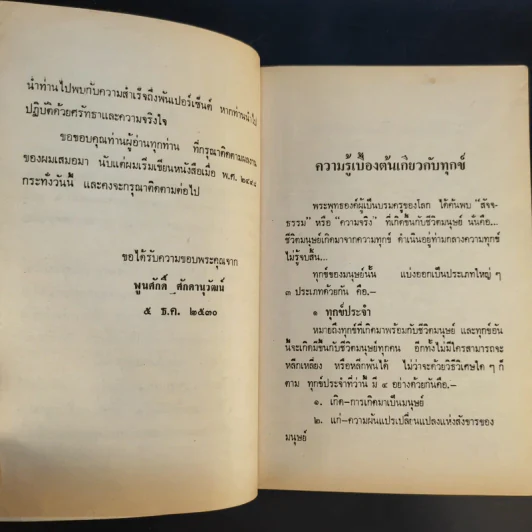 นำท่านไปพบกับความสำเร็จถึงพันเปอร์เซ็นต์ หากท่านนำไป
ปฏิบัติด้วยศรัทธาและความจริงใจ
ขอขอบคุณท่านผู้อ่านทุกท่าน ที่กรุณาติดตามผลงาน
ของผมเสมอมา นับแต่ผมเริ่มเขียนหนังสือเมื่อ พ.ศ.
กระทั่งวันนี้ และคงจะกรุณาติดตามต่อไป
ขอได้รับความขอบพระคุณจาก
พูนศักดิ์ ศักดานุวัฒน์
๕ ธ.ค. ๒๕๓๐
ความรู้เบื้องต้นเกี่ยวกับทุกข์
พระพุทธองค์ผู้เป็นบรมครูของโลก ได้ค้นพบ "สัจจ-
ธรรม" หรือ "ความจริง" ที่เกิดขึ้นกับชีวิตมนุษย์ นั่นคือ...
ชีวิตมนุษย์เกิดมาจากความทุกข์ ดำเนินอยู่ท่ามกลางความทุกข์
ไม่รู้จบสิ้น...
ทุกข์ของมนุษย์นั้น แบ่งออกเป็นประเภทใหญ่ ๆ
๓ ประเภทด้วยกัน คือ.-
๑ ทุกข์ประจำ
หมายถึงทุกข์ที่เกิดมาพร้อมกับชีวิตมนุษย์ และทุกข์อัน
นี้จะเกิดมีขึ้นกับชีวิตมนุษย์ทุกคน อีกทั้งไม่มีใครสามารถจะ
หลีกเหลี่ยง หรือหลีกพ้นได้ ไม่ว่าจะด้วยวิธีวิเศษใด ๆ ก็
ตาม ทุกข์ประจำที่ว่านี้ มี ๔ อย่างด้วยกันคือ.-
๑. เกิด-การเกิดมาเป็นมนุษย์
๒. แก่-ความผันแปรเปลี่ยนแปลงแห่งสังขารของ
มนุษย์